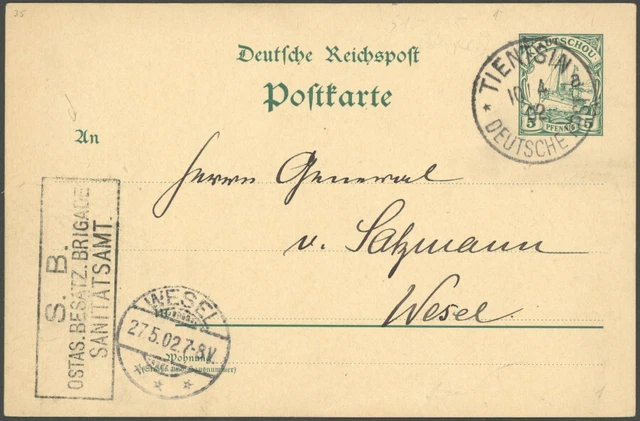 Deutsche Reichspost
Postkarte
KIAUTSCHOU
5 PFENNIG 5
TIENTSIN a
10 4 02
DEUTSCHE
An
Herrn General
v. Salzmann
Wesel.
Wohnung
S. B.
OSTAS. BESATZ. BRIGADE
SANITÄTSAMT.
WESEL
27.5.02.7-8V.